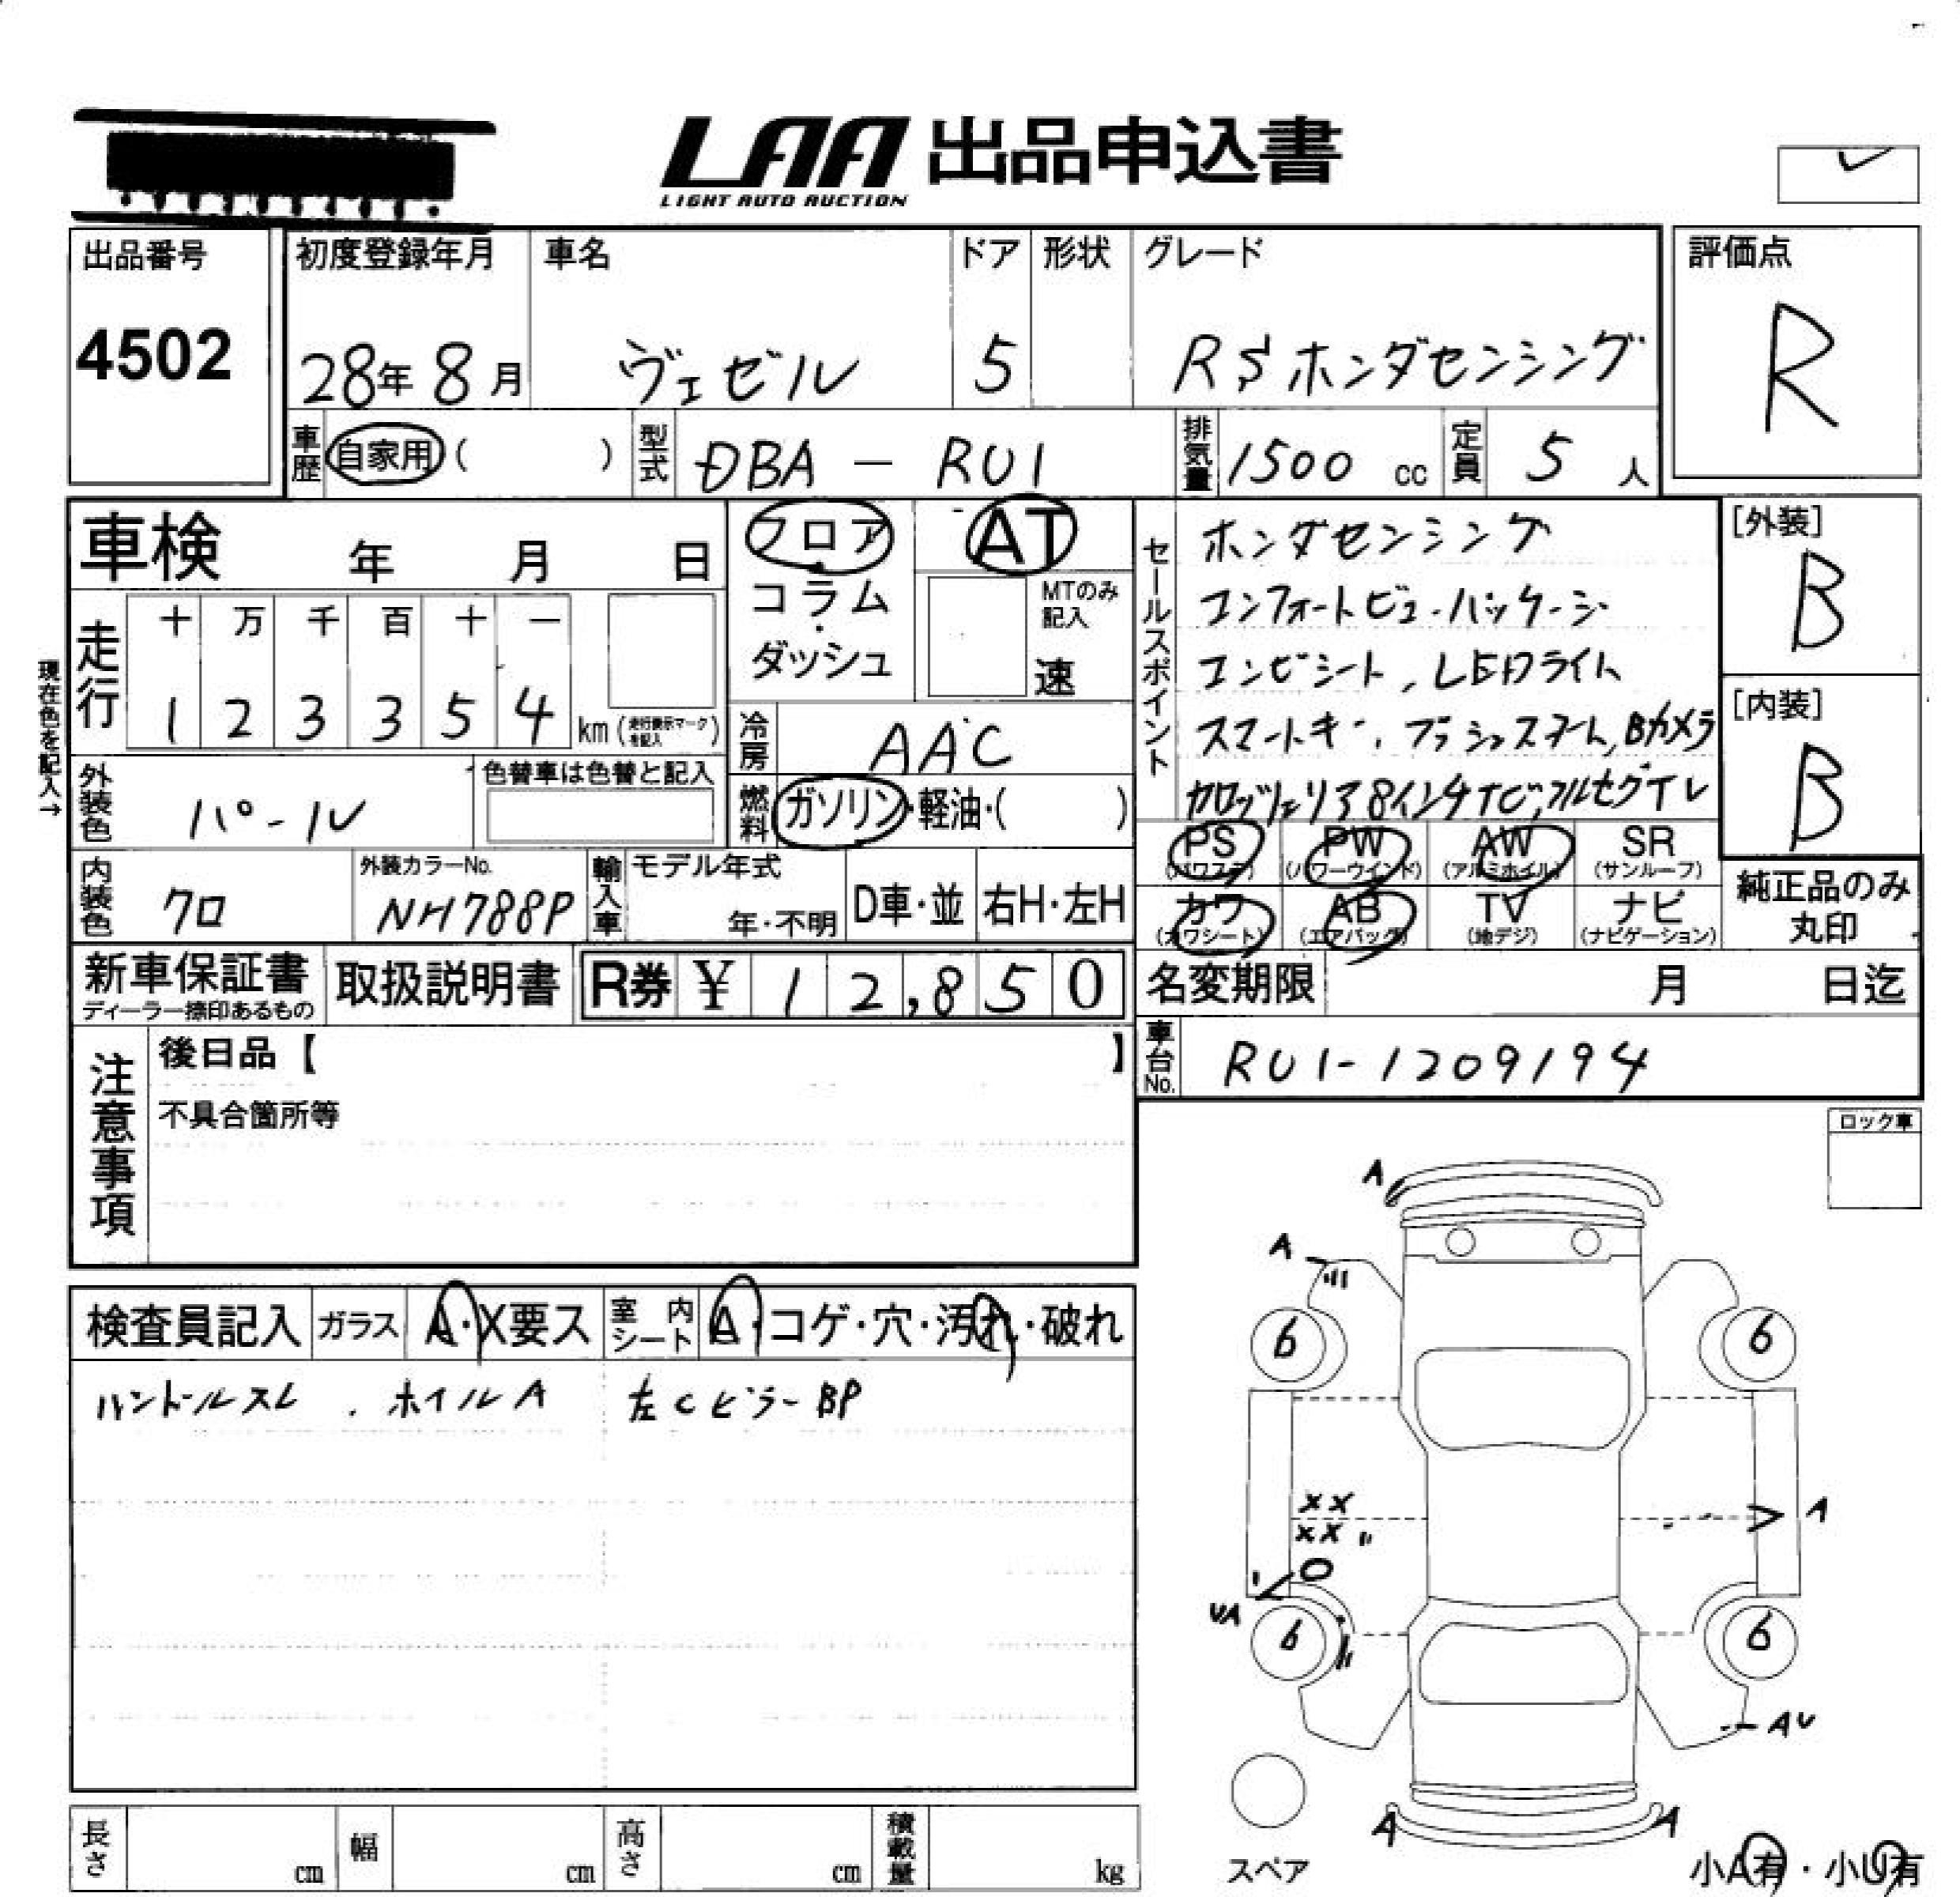 LAA 出品申込書
LIGHT AUTO AUCTION
出品番号
4502
初度登録年月
28年 8月
車名
ヴェゼル
ドア
5
形状
グレード
RS ホンダセンシング
評価点
R
車歴 自家用 ( )
型式 DBA - RU1
排気量 1500 cc
定員 5 人
車検 年 月 日
フロア
コラム
・
ダッシュ
AT
MTのみ
記入
速
セールスポイント
ホンダセンシング
コンフォートビューパッケージ
コンビシート, LEDライト
スマートキー, プッシュスタート, Bカメラ
カロッツェリア8インチナビ, フルセグTV
[外装]
B
[内装]
B
現在色を記入→
走行
十 万 千 百 十 一
1 2 3 3 5 4 km (走行表示マークを記入)
冷房 AAC
外装色 パール
色替車は色替と記入
燃料 ガソリン・軽油・( )
PS (パワステ) PW (パワーウインド) AW (アルミホイル) SR (サンルーフ)
カワ (カワシート) AB (エアバッグ) TV (地デジ) ナビ (ナビゲーション)
純正品のみ
丸印
内装色 クロ
外装カラーNo.
NH788P
輸入車
モデル年式
年・不明
D車・並 右H・左H
新車保証書
ディーラー捺印あるもの
取扱説明書
R券 ¥ 12,850
名変期限 月 日迄
車台No. RU1-1209194
注意事項
後日品【 】
不具合箇所等
ロック車
検査員記入 ガラス A・X要ス 室内シート A・コゲ・穴・汚れ・破れ
ハンドルスレ . ホイルA 左Cピラー BP
A
A
6 6
XX
XX
A
UA
6 6
AU
A A
スペア
小A有・小U有
長さ cm 幅 cm 高さ cm 積載量 kg